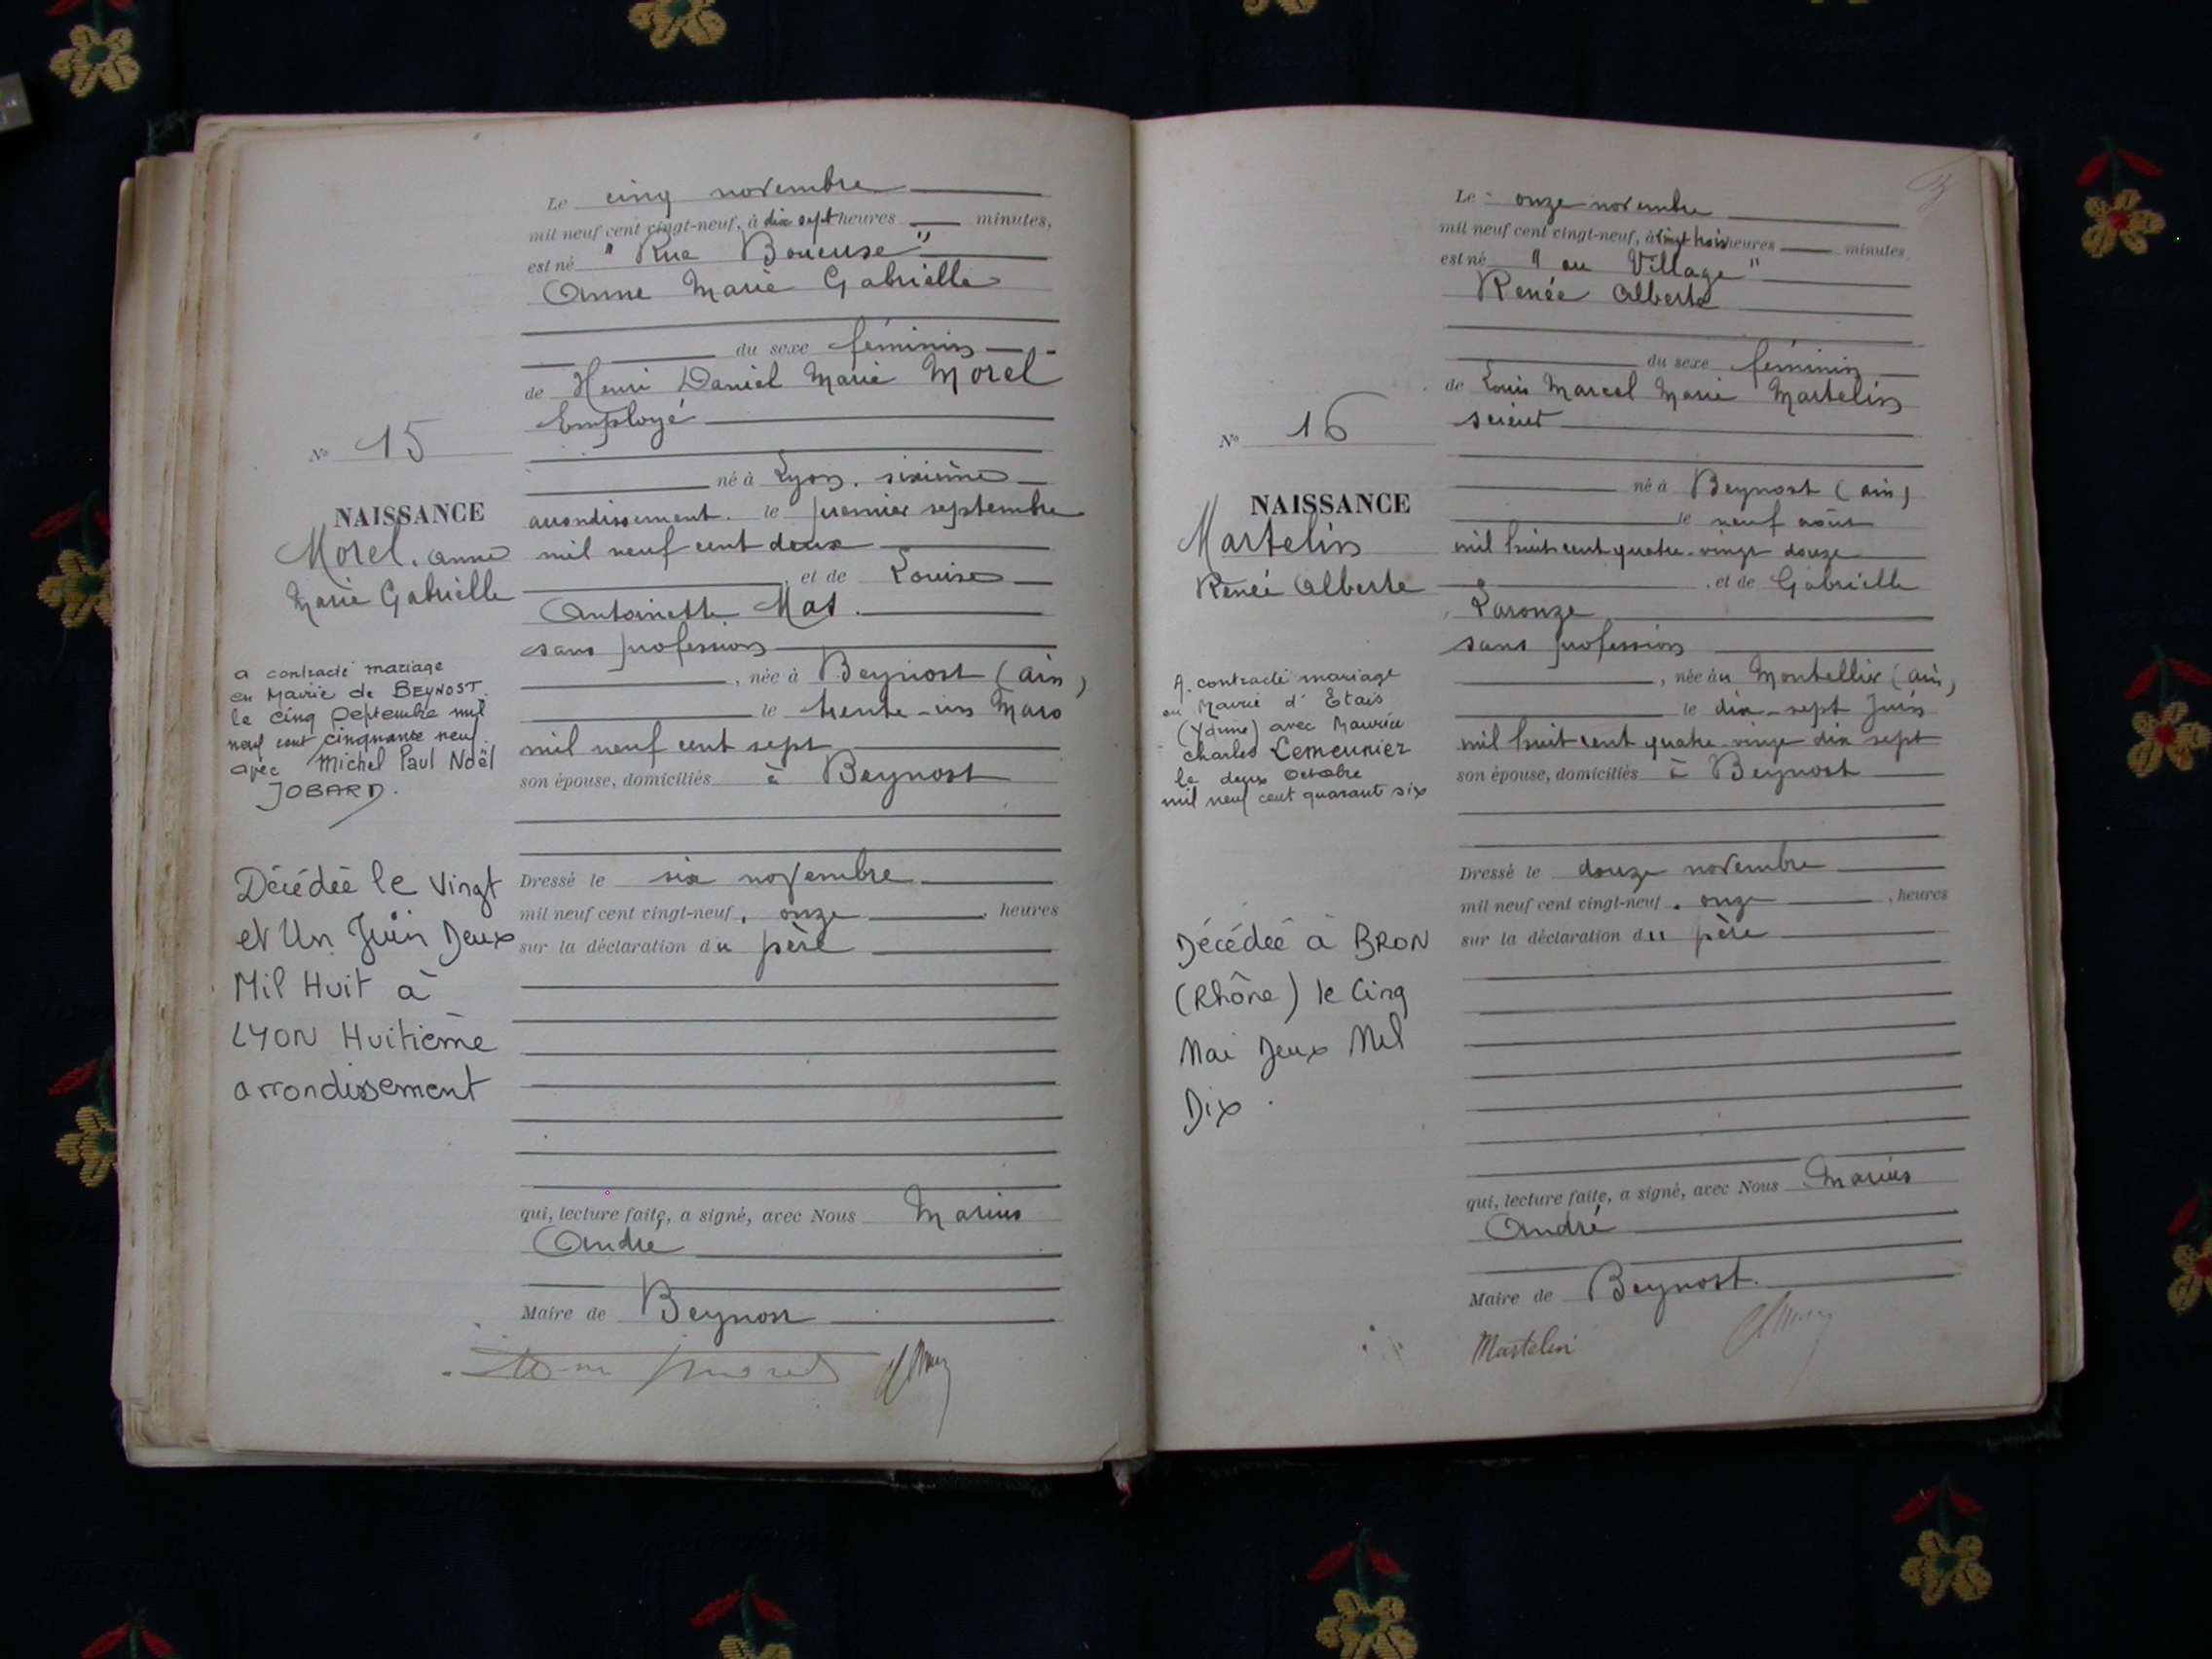 Le cinq novembre
mil neuf cent vingt-neuf, à dix sept heures minutes,
est né " Rue Boueuse "
Anne Marie Gabrielle
du sexe féminin
de Henri Daniel Marie Morel
Employé
né à Lyon. sixième
arrondissement. le premier septembre
mil neuf cent deux
, et de Louise
Antoinette Mas.
sans profession
, née à Beynost (Ain)
le trente-un Mars
mil neuf cent sept
son épouse, domiciliés à Beynost
Dressé le six novembre
mil neuf cent vingt-neuf, onze , heures
sur la déclaration du père
qui, lecture faite, a signé, avec Nous Marius
André
Maire de Beynost
N° 15
NAISSANCE
Morel. Anne
Marie Gabrielle
a contracté mariage
en Mairie de BEYNOST
le cinq Septembre mil
neuf cent cinquante neuf
avec Michel Paul Noël
JOBARD.
Décédée le Vingt
et Un Juin Deux
Mil Huit à
LYON Huitième
arrondissement
Le onze novembre
mil neuf cent vingt-neuf, à vingt trois heures minutes
est né " au Village "
Renée Alberte
du sexe féminin
de Louis Marcel Marie Martelin
scieur
né à Beynost (Ain)
le neuf août
mil huit cent quatre-vingt douze
, et de Gabrielle
Laronze
sans profession
, née au Montellier (Ain)
le dix-sept Juin
mil huit cent quatre-vingt dix sept
son épouse, domiciliés à Beynost
Dressé le douze novembre
mil neuf cent vingt-neuf, onze , heures
sur la déclaration du père
qui, lecture faite, a signé, avec Nous Marius
André
Maire de Beynost.
Martelin
N° 16
NAISSANCE
Martelin
Renée Alberte
A contracté mariage
en Mairie d'Etais
(Yonne) avec Maurice
Charles Lemeunier
le deux Octobre
mil neuf cent quarante six
Décédée à BRON
(Rhône) le Cinq
Mai Deux Mil
Dix.